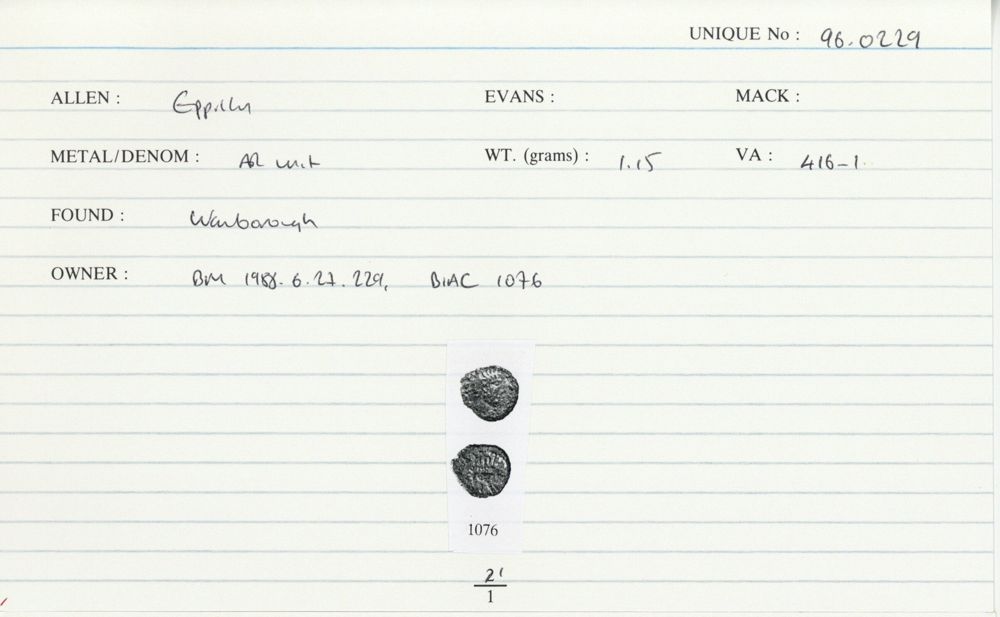 UNIQUE No : 96.0229
ALLEN : Eppillus EVANS : MACK :
METAL/DENOM : AR unit WT. (grams) : 1.15 VA : 416-1
FOUND : Warborough
OWNER : BM 1988.6.27.229, BMC 1076
1076
2'
1